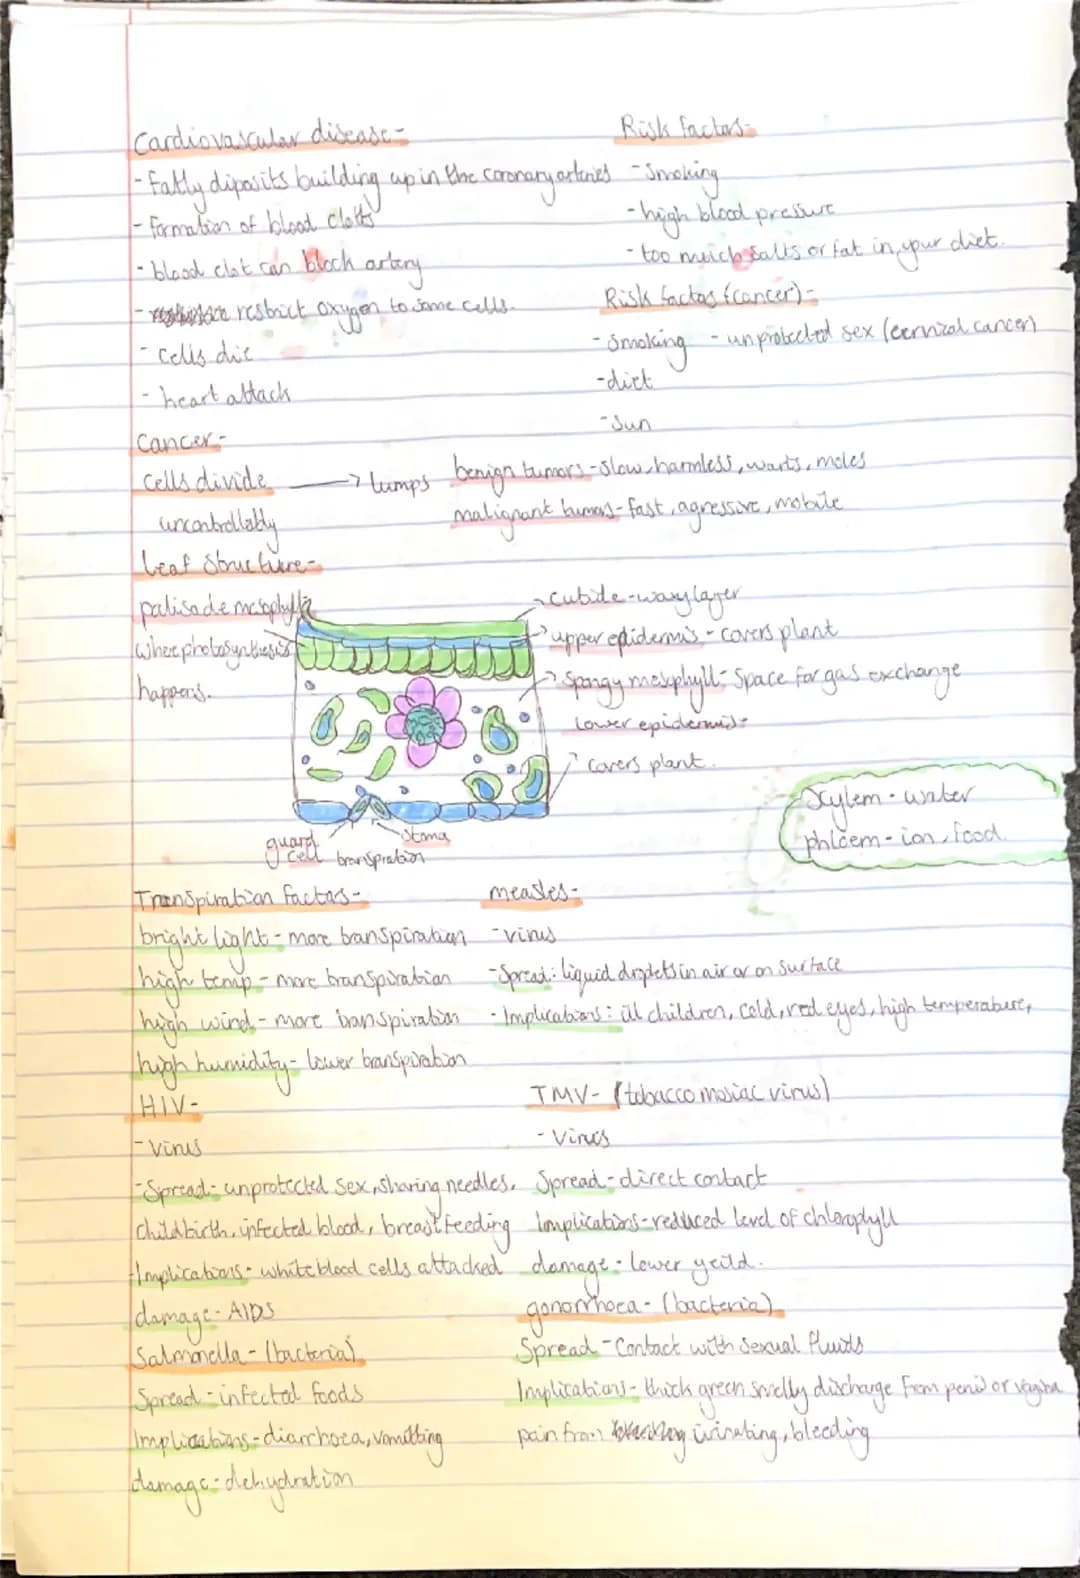 Cardiovascular disease-
- fatty diposits building up in the coronary arteries
- formation of blood clotts
- blood clot can block artery
- restrict oxygen to some cells.
- cells die
- heart attack
Risk factors-
- Smoking
- high blood pressure
- too much salts or fat in your diet.
Risk factos (cancer)-
- Smoking - unprotected sex (cervical cancer)
- diet
- Sun
Cancer-
cells divide → lumps
uncontrollably
benign tumors - slow, harmless, warts, moles
malignant tumors - fast, agressive, mobile
Leaf Structure-
palisade mesophyll
where photosynthesis
happens.
cuticle - waxy layer
upper epidermis - covers plant
spongy mesophyll - Space for gas exchange
Lower epidermis-
covers plant.
guard cell
stoma
transpiration
Xylem - water
phloem - ion, food.
Transpiration factors-
bright light - more transpiration
high temp - more transpiration
high wind - more transpiration
high humidity - lower transpiration
measles-
- virus
- Spread: liquid droplets in air or on surface
- Implications: ill children, cold, red eyes, high temperature,
HIV-
- virus
- Spread - unprotected sex, sharing needles,
childbirth, infected blood, breast feeding
Implications - white blood cells attacked
damage - AIDS
TMV- (tobacco mosiac virus)
- Virus
Spread - direct contact
Implications - reduced level of chlorophyll
damage - lower yeild.
Salmonella - (bacteria)
Spread - infected foods
Implications - diarrhoea, vomitting
damage - dehydration
gonorrhoea - (bacteria)
Spread - Contact with sexual fluids
Implications - thick green smelly discharge from penis or vagina
pain from urinating, bleeding